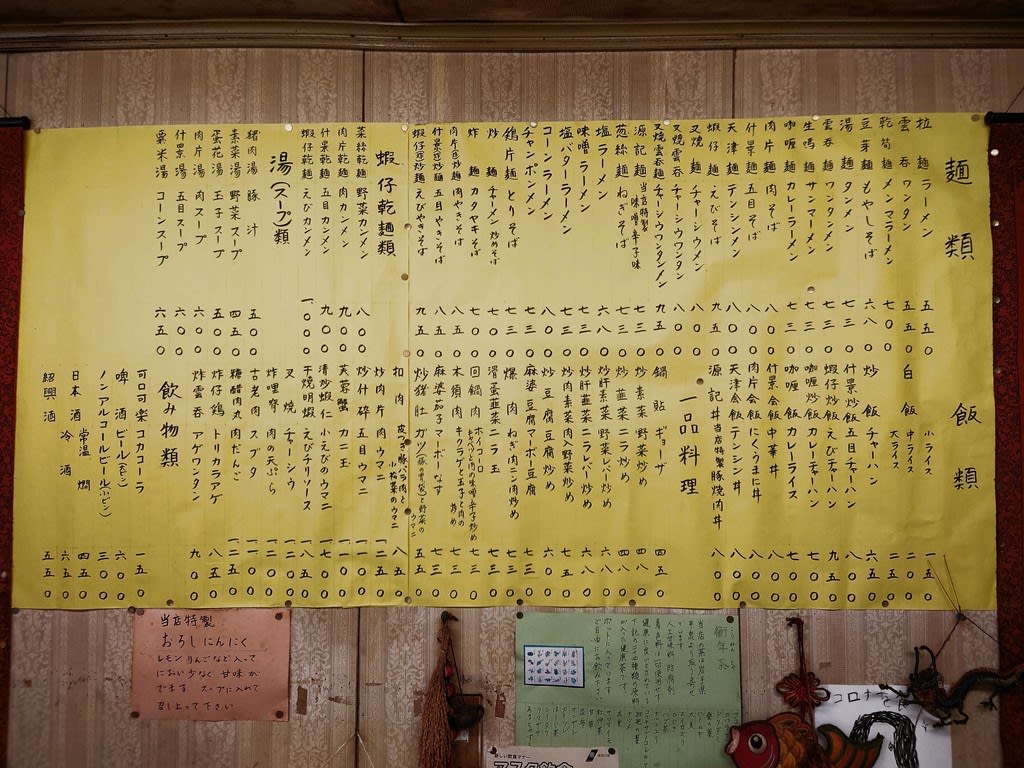 麺類
拉麺 ラーメン 五五〇
雲呑 ワンタン 五五〇
乾筍麺 メンマラーメン 七〇〇
豆芽麺 もやしそば 六八〇
湯麺 タンメン 七三〇
雲呑麺 ワンタンメン 七三〇
生嗎麺 サンマーメン 七三〇
咖喱麺 カレーラーメン 七三〇
肉片麺 肉そば 八〇〇
什景麺 五目そば 八〇〇
天津麺 テンシンメン 八〇〇
蝦仔麺 えびそば 九五〇
叉焼麺 チャーシウメン 八〇〇
叉焼雲呑 チャーシウワンタン 八〇〇
叉焼雲呑麺 チャーシウワンタンメン 九五〇
源記麺 当店特製味噌辛子味 七三〇
葱絲麺 ねぎそば 七三〇
塩ラーメン 六八〇
味噌ラーメン 七三〇
塩バターラーメン 七三〇
コーンラーメン 八〇〇
チャンポンメン 七三〇
鶏片麺 とりそば 七三〇
炒麺 チャーメン 炒めそば 七〇〇
炸麺 カタヤキそば 七〇〇
肉片炒麺 肉やきそば 八五〇
什景炒麺 五目やきそば 八五〇
蝦仔炒麺 えびやきそば 九五〇
蝦仔乾麺類
菜絲乾麺 野菜カンメン 八〇〇
肉片乾麺 肉カンメン 九〇〇
什景乾麺 五目カンメン 九〇〇
蝦仔乾麺 えびカンメン 一、〇〇〇
湯(スープ類)
猪肉湯 豚汁 五〇〇
素菜湯 野菜スープ 四五〇
蛋花湯 玉子スープ 五〇〇
肉片湯 肉スープ 六〇〇
什景湯 五目スープ 六〇〇
粟米湯 コーンスープ 六五〇
飯類
小ライス 一五〇
白飯 中ライス 二〇〇
大ライス 二五〇
炒飯 チャーハン 六五〇
什景炒飯 五目チャーハン 八〇〇
蝦仔炒飯 えびチャーハン 九五〇
咖喱炒飯 カレーチャーハン 七〇〇
咖喱飯 カレーライス 七〇〇
什景会飯 中華丼 八〇〇
肉片会飯 にくうまに丼 八〇〇
天津会飯 テンシン丼 八〇〇
源記丼 当店特製豚焼肉丼 八〇〇
一品料理
鍋貼 ギョーザ 四五〇
炒素菜 野菜炒め 四八〇
炒韮菜 ニラ炒め 四八〇
炒肝素菜 野菜レバー炒め 六八〇
炒肝韮菜 ニラレバー炒め 六八〇
炒肉素菜 肉入野菜炒め 七五〇
炒豆腐 豆腐炒め 六〇〇
麻婆豆腐 マーボ豆腐 七三〇
爆肉 ねぎ肉ニン肉炒め 七三〇
滑蛋韮菜 ニラ玉 七三〇
回鍋肉 ホイコーロ キャベツと肉の味噌辛子炒め 七三〇
木須肉 キクラゲと玉子と肉の炒め 七三〇
麻婆茄子 マーボーなす 七三〇
炒猪肚 ガツ(豚の胃袋)と野菜のウマニ 五五〇
扣肉 皮つき豚バラ肉と小松菜のウマニ 八五〇
炒肉片 肉ウマニ 一二五〇
炒什碎 五目ウマニ 一一〇〇
芙蓉蟹 カニ玉 一一〇〇
清炒蝦仁 小えびのウマニ 一七〇〇
干焼明蝦 えびチリソース 一八〇〇
叉焼 チャーシウ 一二〇〇
炸哩脊 肉の天ぷら 一二〇〇
古老肉 スブタ 一一〇〇
糖醋肉丸 肉だんご 一二五〇
炸仔鶏 トリカラアゲ 八五〇
炸雲呑 アゲワンタン 九〇〇
飲み物類
可口可楽 コカコーラ 一五〇
啤酒 ビール(大ビン) 六〇〇
ノンアルコールビール(小ビン) 三〇〇
日本酒 常温 燗 四五〇
冷酒 六五〇
紹興酒 五五〇
当店特製
おろしにんにく
レモン りんごなど入って
におい少なく 甘味が
でます スープに入れて
召し上って下さい